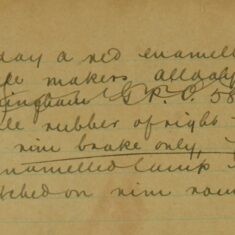 day a red enamell
makers
ingham G.P.O. 58
le rubber of right
rim brake only,
enamelled lamp
tched on rim rou